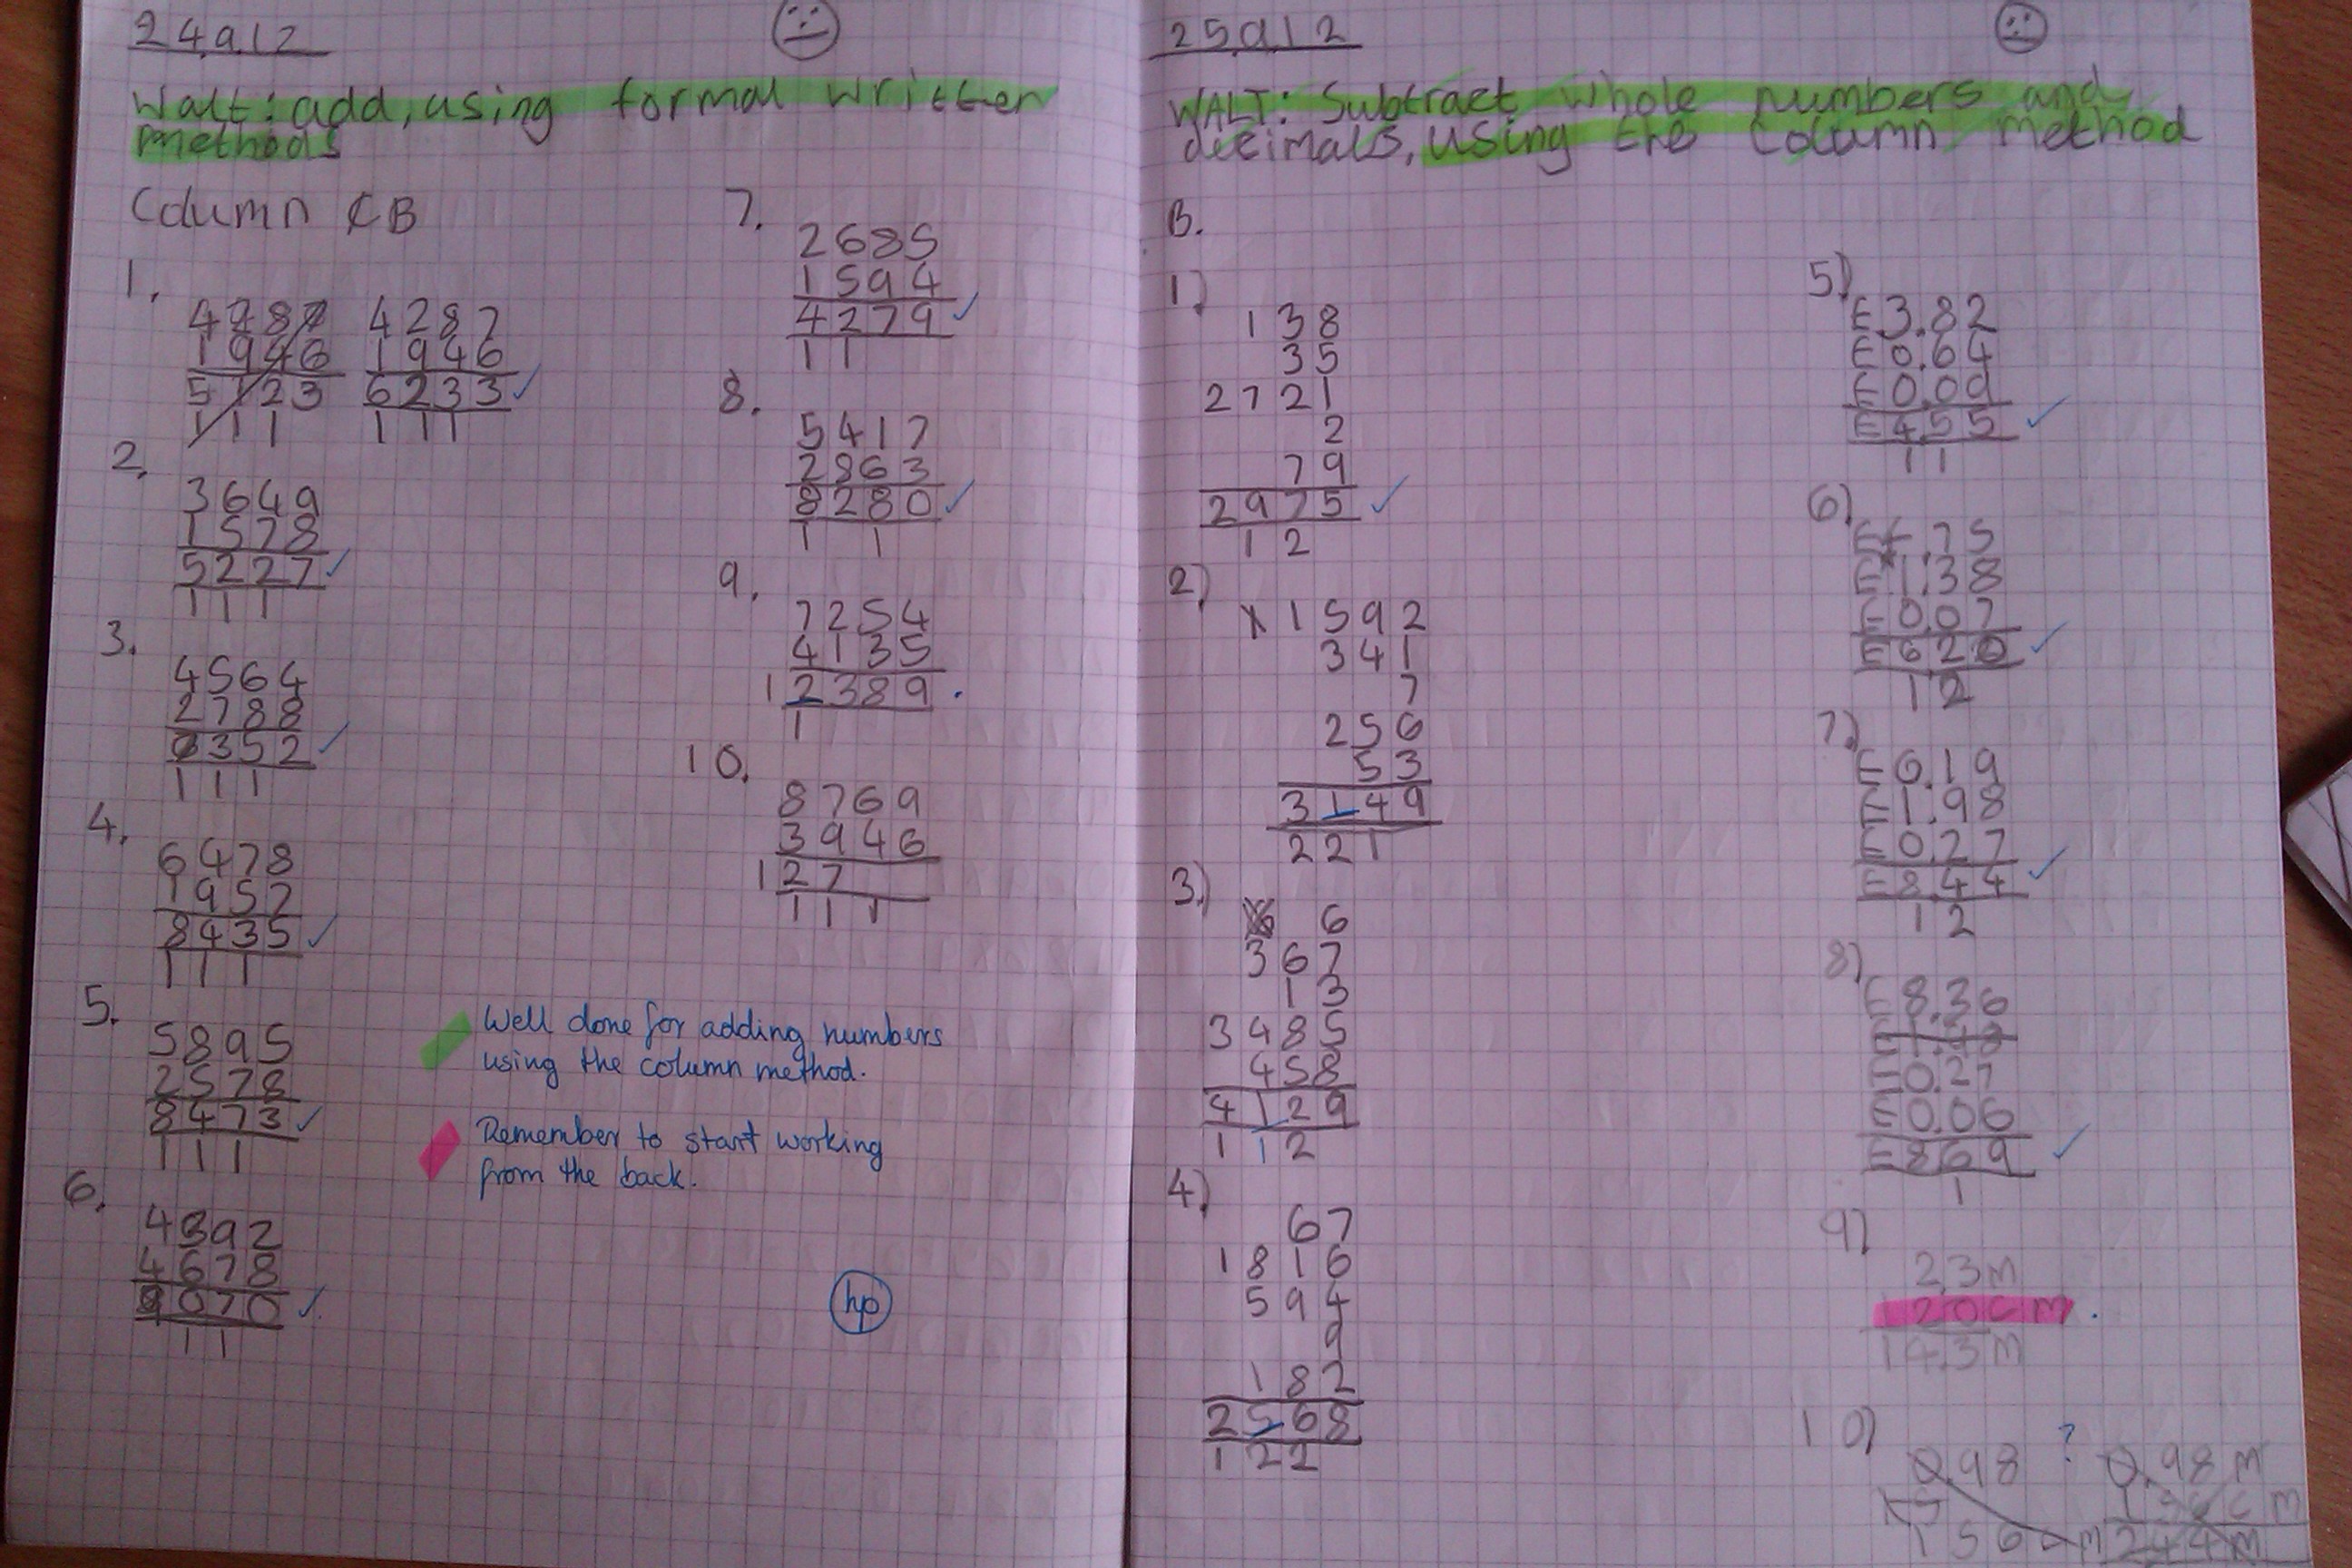 24.9.12
Walt: add, using formal written
methods
Column ₵B
1.
4287
1946
5123
111
4287
1946
6233
111
2.
3649
1578
5227
111
3.
4564
2788
7352
111
4.
6478
1952
8435
111
5.
5895
2578
8473
111
6.
4392
4678
9070
11
7.
2685
1594
4279
11
8.
5417
2863
8280
1 1
9.
7254
4135
12389
1
10.
8769
3946
127
111
Well done for adding numbers
using the column method.
Remember to start working
from the back.
hp
25.9.12
WALT: Subtract whole numbers and
decimals, using the column method
B.
1)
138
35
2721
2
79
2975
12
2)
1592
341
7
256
53
3149
221
3)
6
367
13
3485
458
4129
112
4)
67
1816
594
9
182
2568
122
5)
£3.82
£0.64
£0.09
£4.55
11
6)
.75
£1.38
£0.07
£6.20
12
7)
£6.19
£1.98
£0.27
£8.44
12
8)
£8.36
£0.27
£0.06
£8.69
1
9)
2.3m
120cm
14.3m
10)
0.98
?
156cm
0.98m
136cm
244m